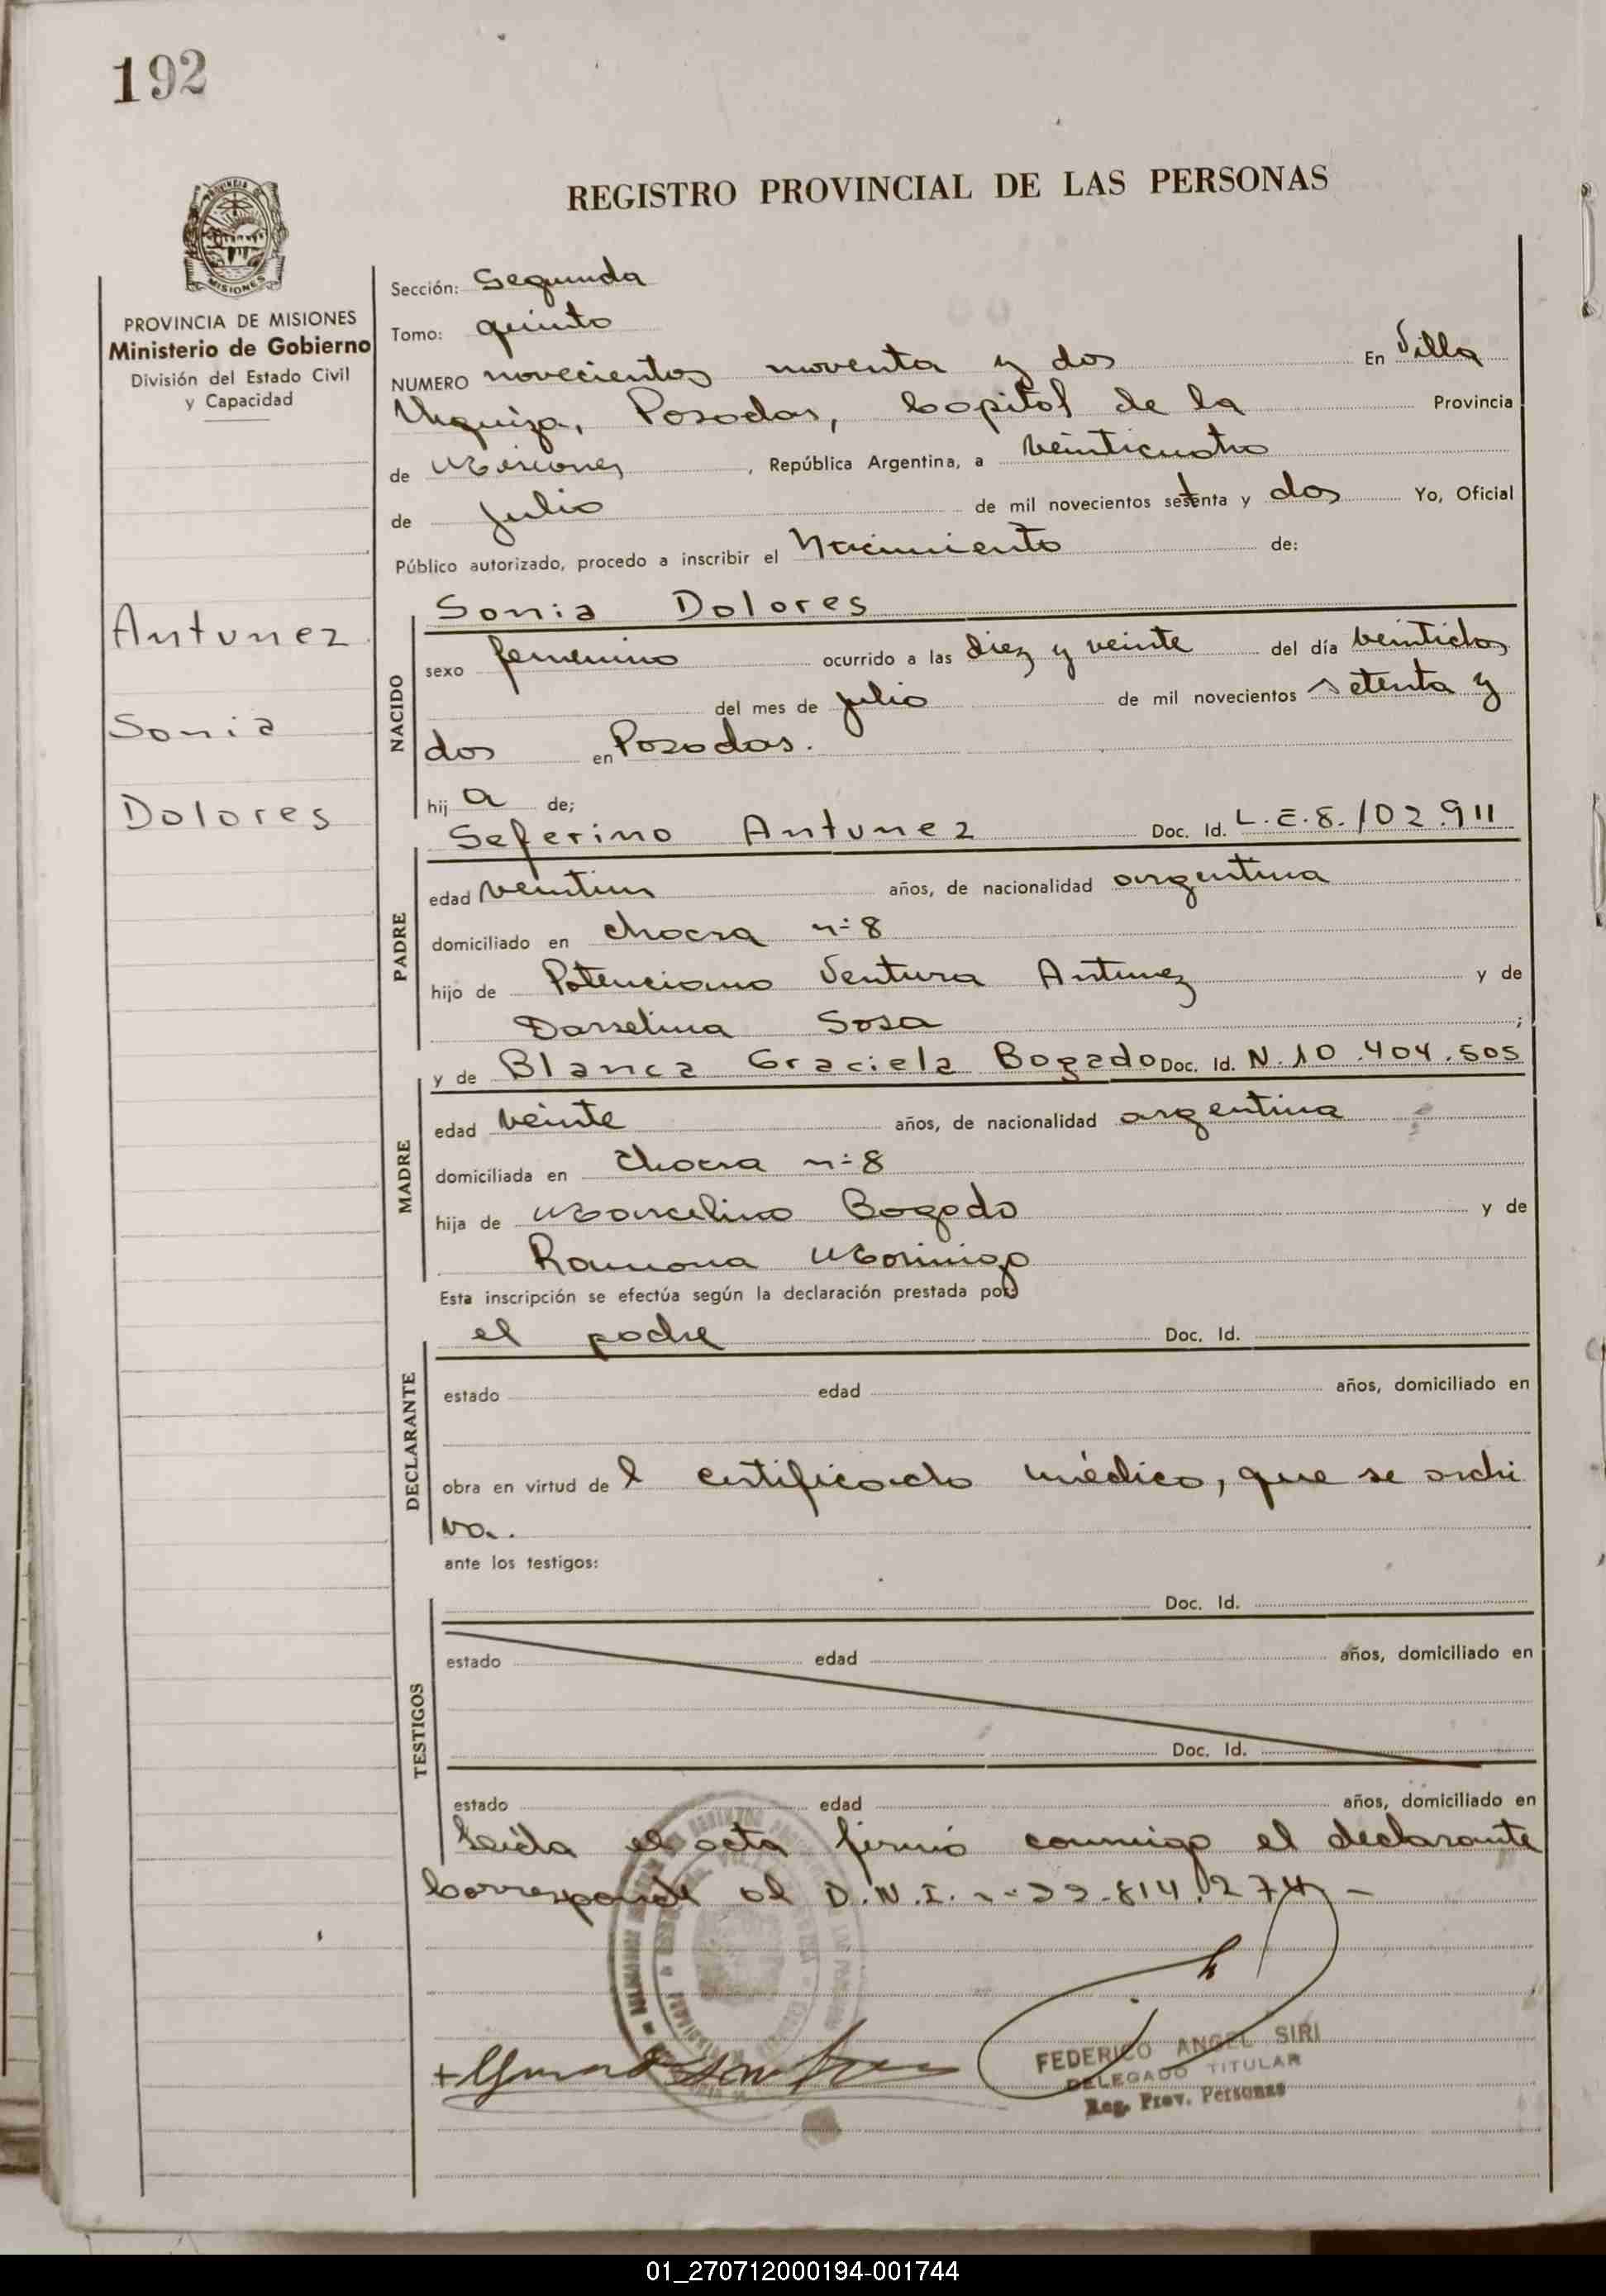 192
REGISTRO PROVINCIAL DE LAS PERSONAS
MISIONES
PROVINCIA DE MISIONES
Ministerio de Gobierno
División del Estado Civil
y Capacidad
Antunez
Sonia
Dolores
Sección: Segunda
Tomo: quinto
NUMERO novecientos noventa y dos En Villa
Urquiza, Posadas, Capital de la Provincia
de Misiones, República Argentina, a veinticuatro
de Julio de mil novecientos setenta y dos Yo, Oficial
Público autorizado, procedo a inscribir el Nacimiento de:
NACIDO
Sonia Dolores
sexo femenino ocurrido a las diez y veinte del día veintidos
del mes de julio de mil novecientos setenta y
dos en Posadas.
hija de;
PADRE
Seferino Antunez Doc. Id. L.E.8.102.911
edad veintiun años, de nacionalidad argentina
domiciliado en chacra nº 8
hijo de Potenciano Ventura Antunez y de
Sosa;
MADRE
y de Blanca Graciela Bogado Doc. Id. N.10.404.505
edad veinte años, de nacionalidad argentina
domiciliada en chacra nº 8
hija de Marcelino Bogado y de
Ramona Morinigo
Esta inscripción se efectúa según la declaración prestada por:
DECLARANTE
el padre Doc. Id.
estado edad años, domiciliado en
obra en virtud del certificado médico, que se archi
va.
ante los testigos:
TESTIGOS
Doc. Id.
estado edad años, domiciliado en
Doc. Id.
estado edad años, domiciliado en
Leida el acta firmó conmigo el declarante
Corresponde al D.N.I. nº 22.814.274 -
FEDERICO ANGEL SIRI
DELEGADO TITULAR
Reg. Prov. Personas
01_270712000194-001744